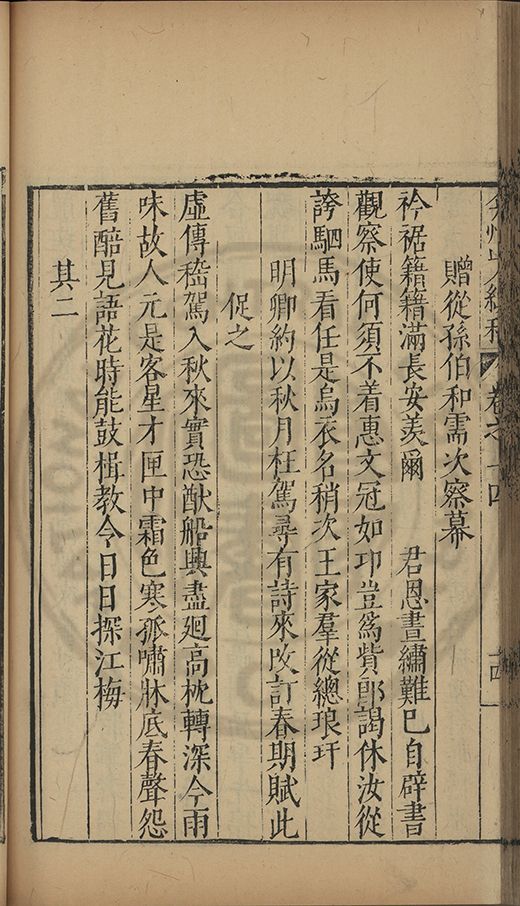 弇州山人續稿 卷之十四 十四
贈從孫伯和需次察幕
衿裾籍籍滿長安羨爾 君恩晝繡難已自辟書
觀察使何須不着惠文冠如卭豈爲貲郎謁休汝從
誇駟馬看任是烏衣名稍次王家羣從總琅玕
明卿約以秋月枉駕尋有詩來改訂春期賦此
促之
虛傳嵇駕入秋來實恐猷船興盡廻高枕轉深今雨
味故人元是客星才匣中霜色寒孤嘯牀底春聲怨
舊醅見語花時能鼓楫教令日日探江梅
其二